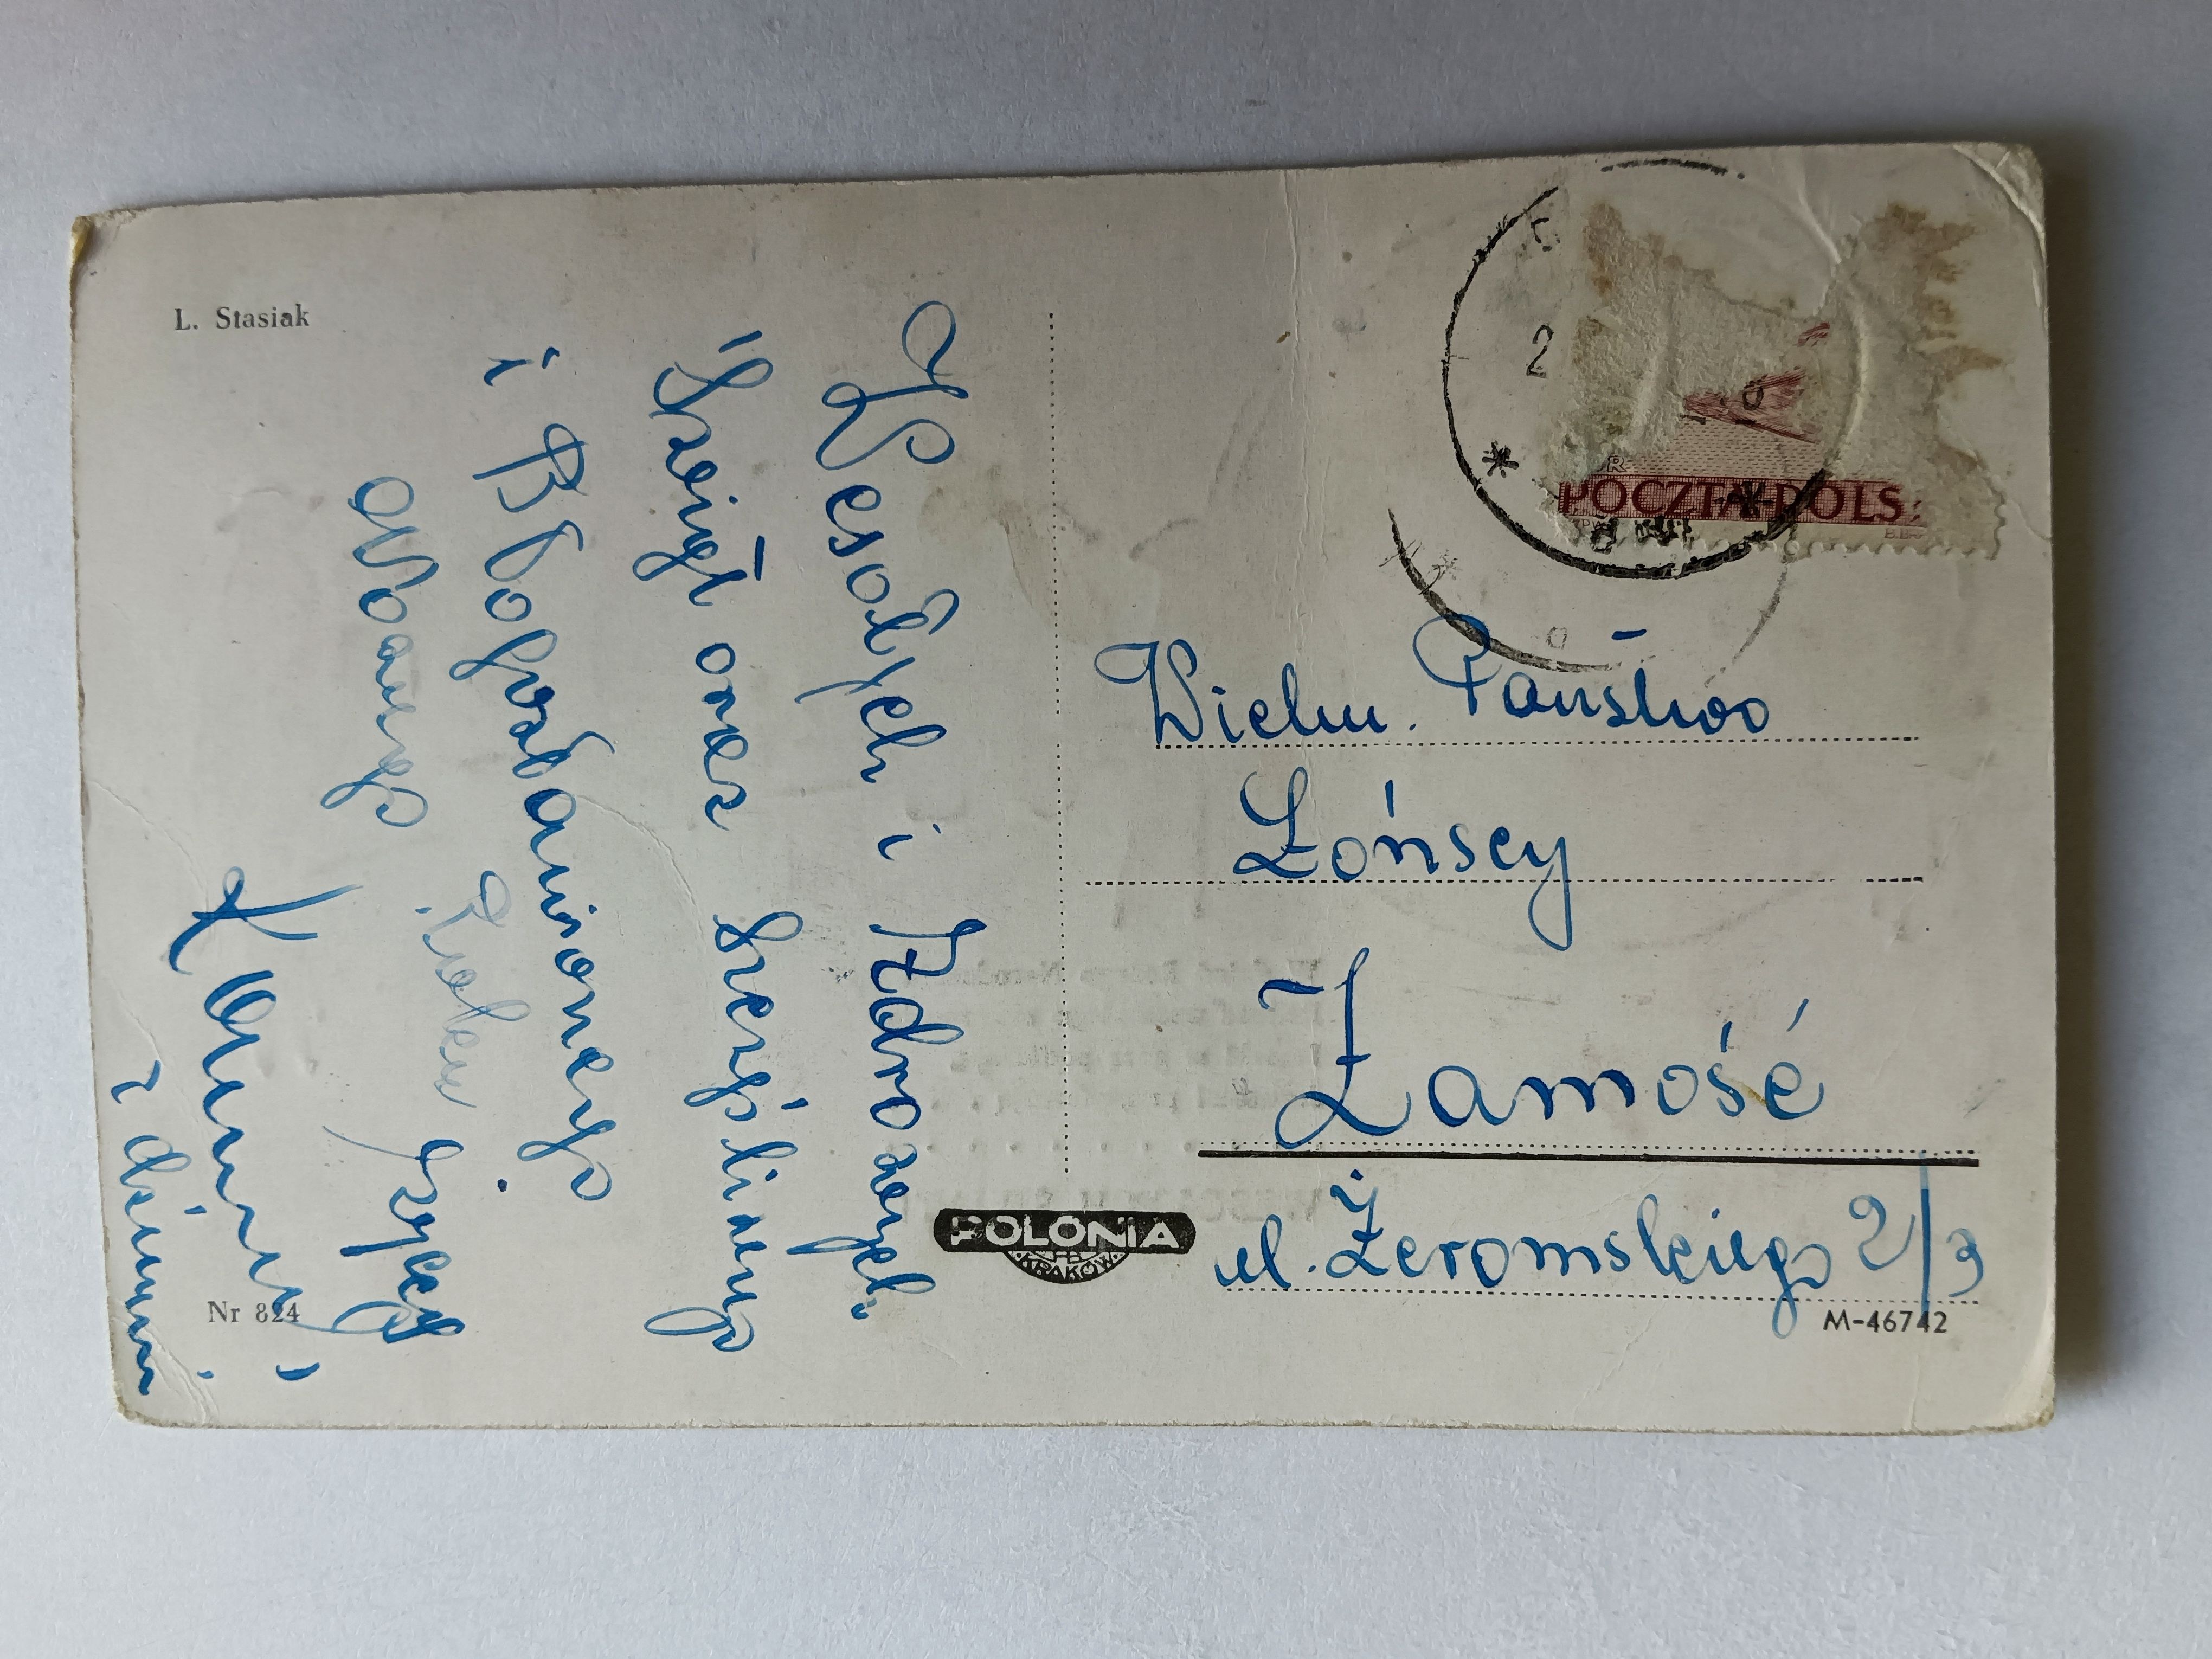 L. Stasiak
Wesołych i Zdrowych
Świąt oraz Szczęśliwego
i Błogosławionego
Nowego Roku życzy
z dziećmi
Nr 824
POLONIA
KRAKÓW
POCZTA POLS
2
Wielm. Państwo
Łońscy
Zamość
ul. Żeromskiego 2/3
M-46742